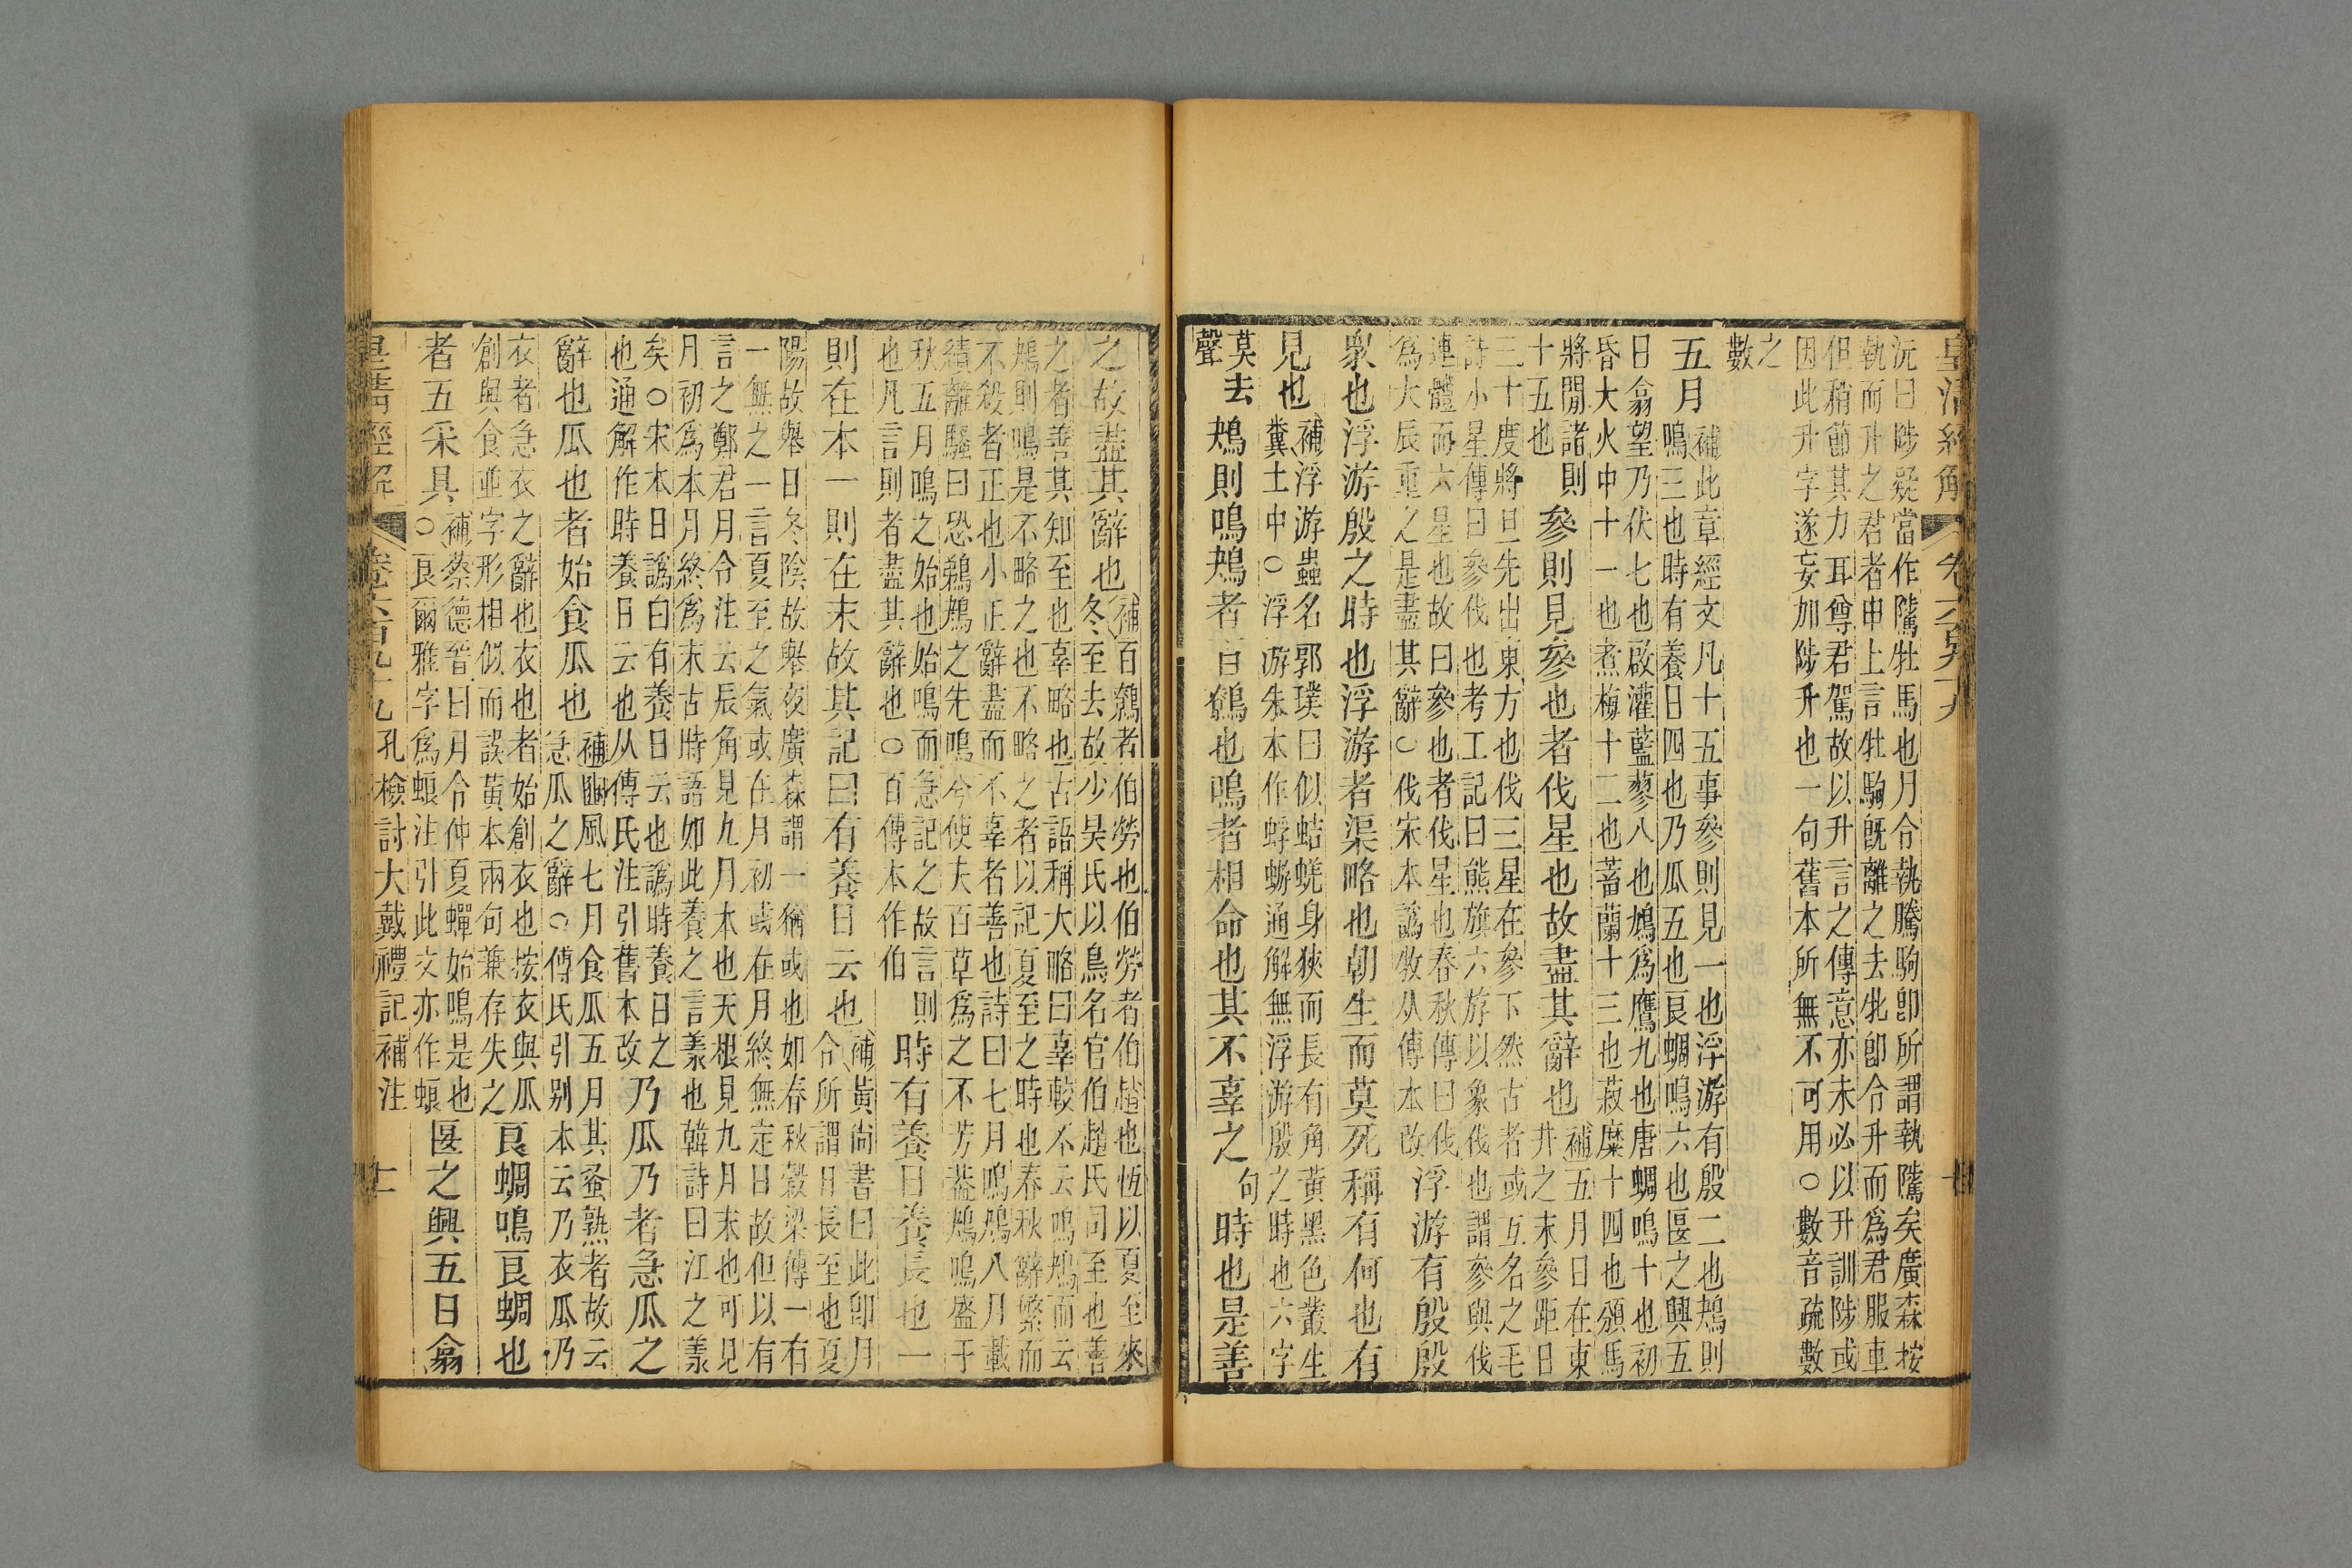 皇清經解
沅曰陟疑當作隲牡馬也月令執騰駒卽所謂執隲矣廣森按
執而升之君者申上言牡駒旣離之去牝卽令升而爲君服車
但稍節其力耳尊君駕故以升言之傳意亦未必以升訓陟或
因此升字遂妄加陟升也一句舊本所無不可用○數音疏數
之
數
五月
補此章經文凡十五事參則見一也浮游有殷二也鴂則
鳴三也時有養日四也乃瓜五也良蜩鳴六也匽之興五
日翕望乃伏七也啟灌藍蓼八也鳩爲鷹九也唐蜩鳴十也初
昏大火中十一也煮梅十二也蓄蘭十三也菽糜十四也頒馬
將閒諸則
十五也
參則見參也者伐星也故盡其辭也
補五月日在東
井之末參距日
三十度將旦先出東方也伐三星在參下然古者或互名之毛
詩小星傳曰參伐也考工記曰熊旗六斿以象伐也謂參與伐
連體而六星也故曰參也者伐星也春秋傳曰伐
爲大辰重之是盡其辭○伐宋本譌牧从傳本改
浮游有殷殷
衆也浮游殷之時也浮游者渠略也朝生而莫死稱有何也有
見也
補浮游蟲名郭璞曰似蛣蜣身狹而長有角黃黑色叢生
糞土中○浮游朱本作蜉蝣通解無浮游殷之時也六字
莫去
聲
鴂則鳴鴂者百鷯也鳴者相命也其不辜之
句
時也是善
之故盡其辭也
補百鷯者伯勞也伯勞者伯趙也恆以夏至來
冬至去故少昊氏以鳥名官伯趙氏司至也善
之者善其知至也辜略也古語稱大略曰辜較不云鳴鴂而云
鴂則鳴是不略之也不略之者以記夏至之時也春秋辭繁而
不殺者正也小正辭盡而不辜者善也詩曰七月鳴鴂八月載
績離騷曰恐鵜鴂之先鳴兮使夫百草爲之不芳葢鴂鳴盛于
秋五月鳴之始也始鳴而急記之故言則
也凡言則者盡其辭也○百傳本作伯
時有養日養長也一
則在本一則在末故其記曰有養日云也
補黃尚書曰此卽月
令所謂日長至也夏
陽故舉日冬陰故舉夜廣森謂一稱或也如春秋穀梁傳一有
一無之一言夏至之氣或在月初或在月終無定日故但以有
言之鄭君月令注云辰角見九月本也天根見九月末也可見
月初爲本月終爲末古時語如此養之言羕也韓詩曰江之羕
矣○宋本日譌白有養日云也譌時養日之
也通解作時養日云也从傳氏注引舊本改
乃瓜乃者急瓜之
辭也瓜也者始食瓜也
補豳風七月食瓜五月其蚤熟者故云
急瓜之辭○傳氏引别本云乃衣瓜乃
衣者急衣之辭也衣也者始創衣也按衣與瓜
創與食並字形相似而誤黃本兩句兼存失之
良蜩鳴良蜩也
者五采具
補蔡德晉曰月令仲夏蟬始鳴是也
○良爾雅字爲蜋注引此文亦作蜋
匽之興五日翕
皇清經解
卷六百九十九
孔檢討大戴禮記補注